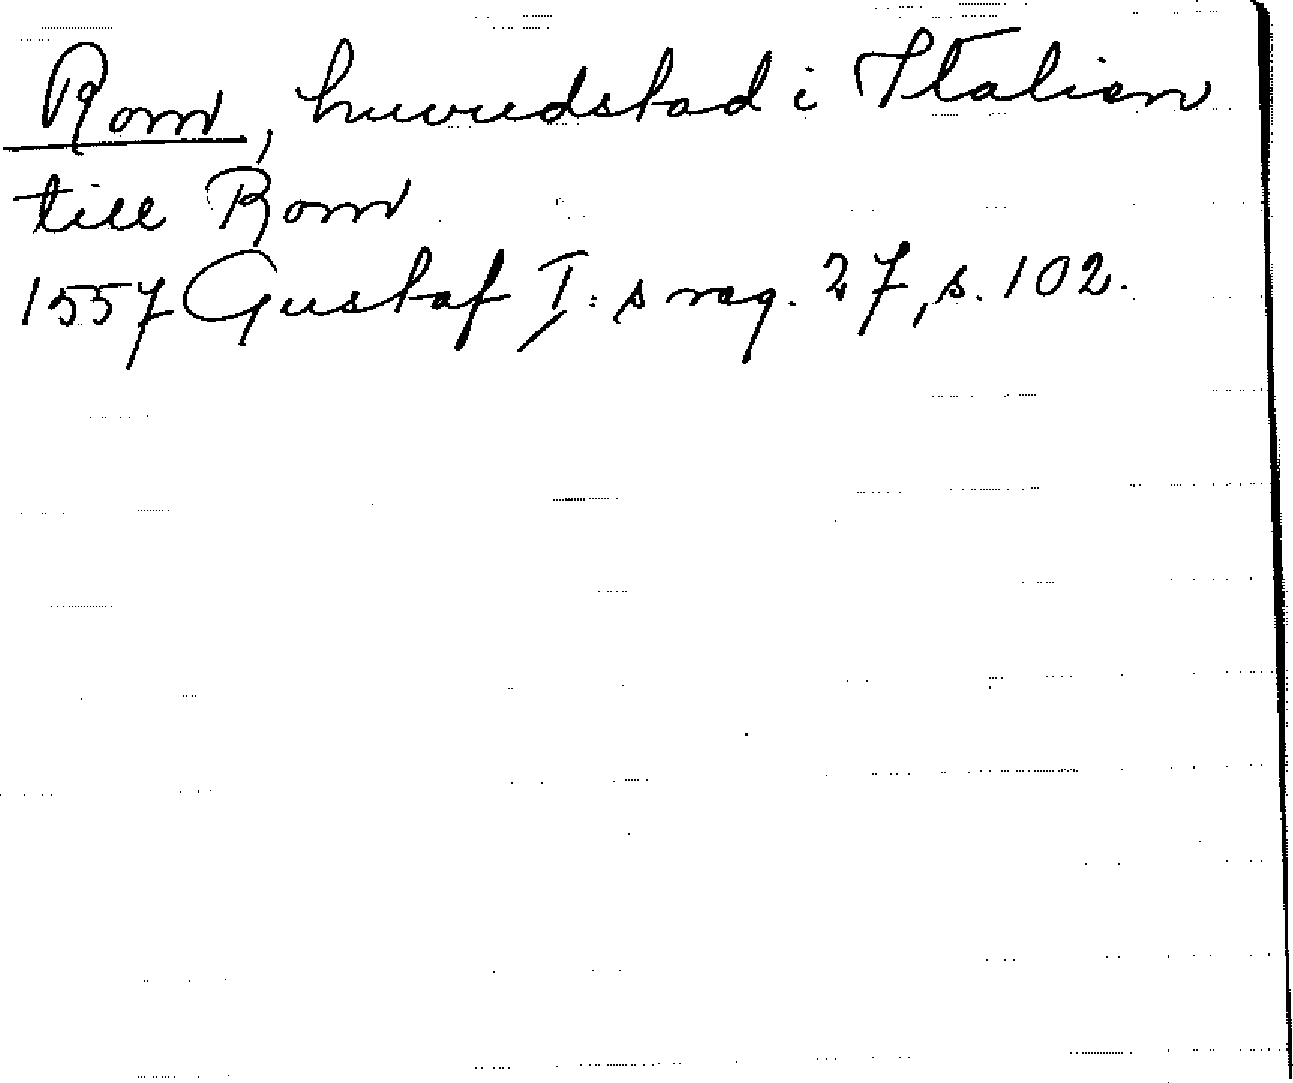 Rom, huvudstad i Italien
till Rom
1557 Gustaf I:s reg. 27, s. 102.